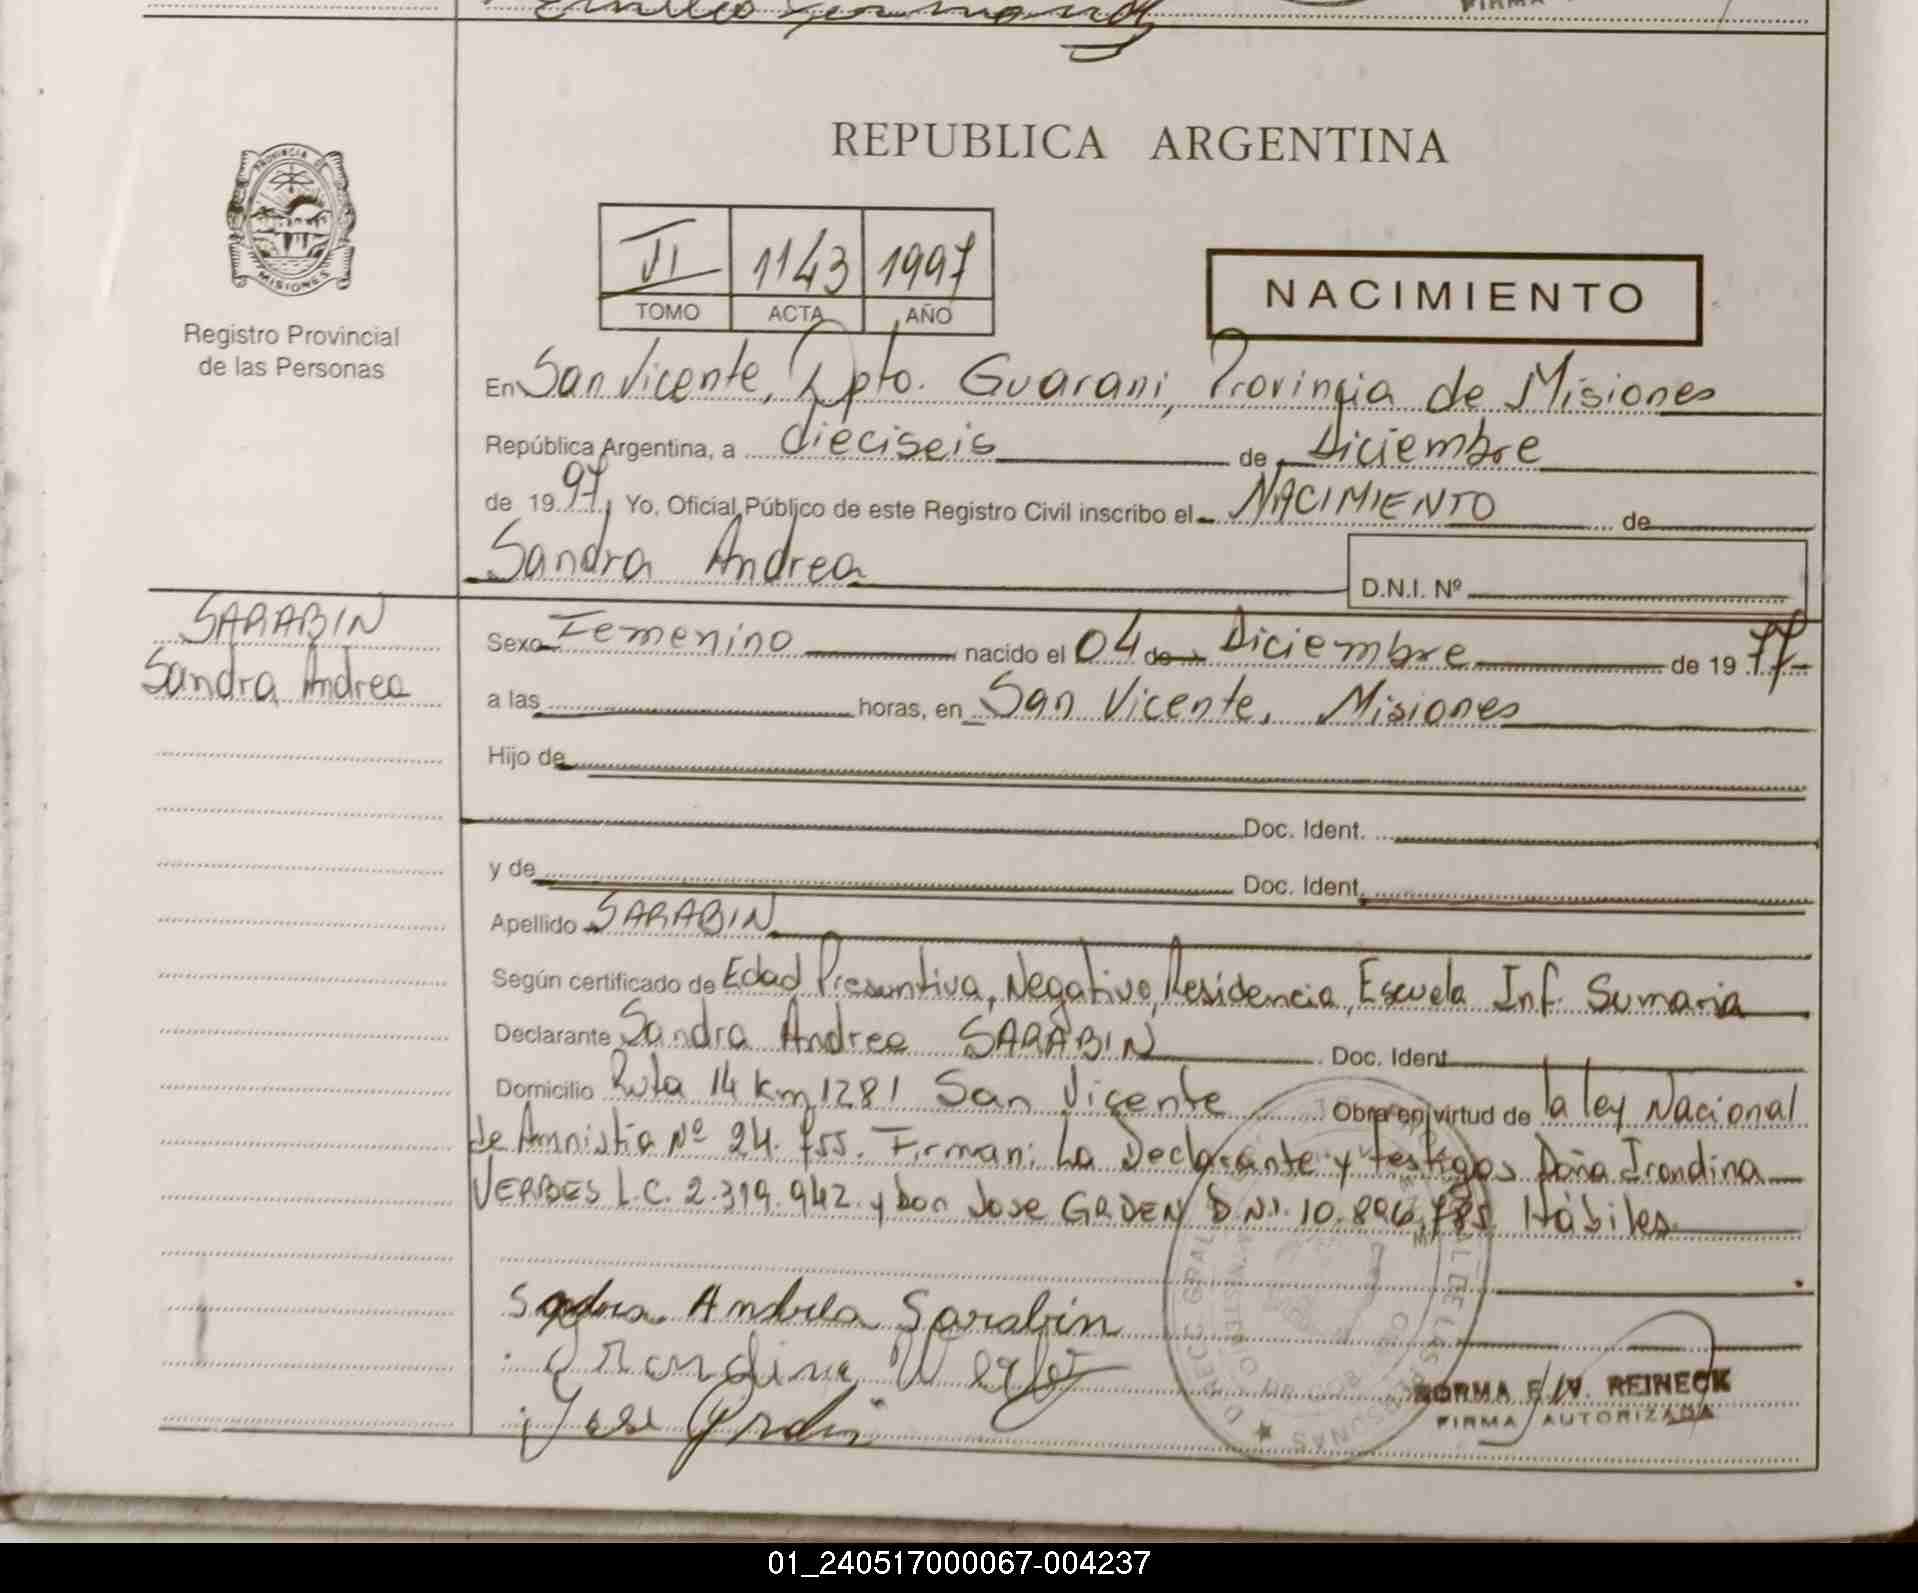 REPUBLICA ARGENTINA
PROVINCIA DE
MISIONES
Registro Provincial
de las Personas
VI 1143 1997
TOMO ACTA AÑO
NACIMIENTO
En San Vicente, Dpto. Guarani, Provincia de Misiones
República Argentina, a dieciseis de Diciembre
de 1997, Yo, Oficial Público de este Registro Civil inscribo el NACIMIENTO de
Sandra Andrea
D.N.I. Nº
SARABIN
Sandra Andrea
Sexo Femenino nacido el 04 de Diciembre de 1977
a las horas, en San Vicente, Misiones
Hijo de
Doc. Ident.
y de Doc. Ident.
Apellido SARABIN
Según certificado de Edad Presuntiva, Negativo, Residencia, Escuela Inf. Sumaria
Declarante Sandra Andrea SARABIN Doc. Ident
Domicilio Ruta 14 km 1281 San Vicente Obra en virtud de la ley Nacional
de Amnistia Nº 24.755. Firman: La Declarante y testigos Doña Irondina
VERBES L.C. 2.319.942 y don Jose GRDEN D.N.I. 10.896.785 Hábiles
Sandra Andrea Sarabin
Irondina
Jose Grden
NORMA E. REINECK
FIRMA AUTORIZADA
01_240517000067-004237